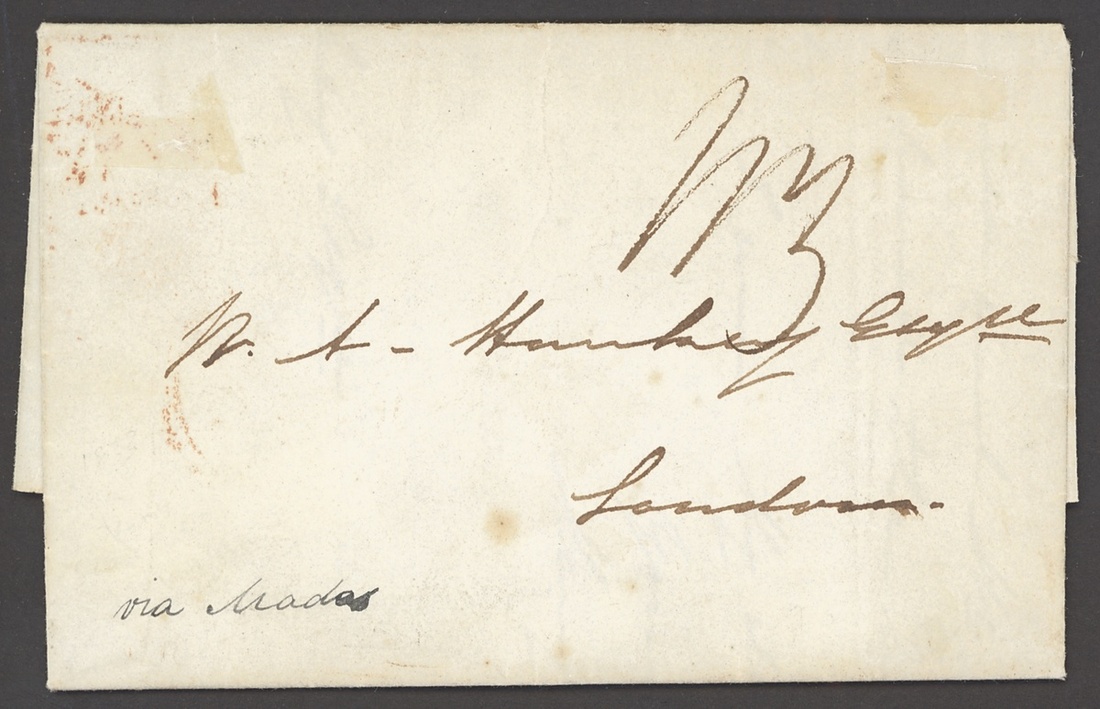 W. A. Hankey Esqre
London.
via Madas